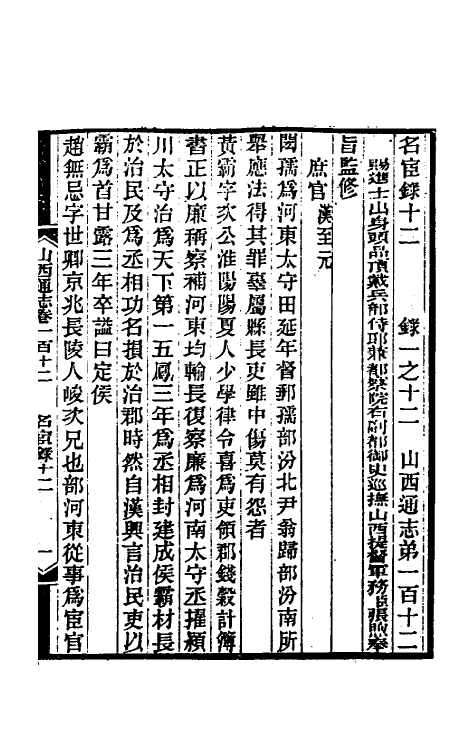 名宦錄十二 錄一之十二 山西通志第一百十二
賜進士出身頭品頂戴兵部侍郎兼都察院右副都御史巡撫山西提督軍務臣張煦奉
旨監修
庶官漢至元
閎孺爲河東太守田延年督郵孺部汾北尹翁歸部汾南所
舉應法得其罪辜屬縣長吏雖中傷莫有怨者
黃霸字次公淮陽陽夏人少學律令喜爲吏領郡錢穀計簿
書正以廉稱察補河東均輸長復察廉爲河南太守丞擢潁
川太守治爲天下第一五鳳三年爲丞相封建成侯霸材長
於治民及爲丞相功名損於治郡時然自漢興言治民吏以
霸爲首甘露三年卒謚曰定侯
趙無忌字世卿京兆長陵人岐次兄也部河東從事爲宦官
山西通志卷一百十二 名宦錄十二 一